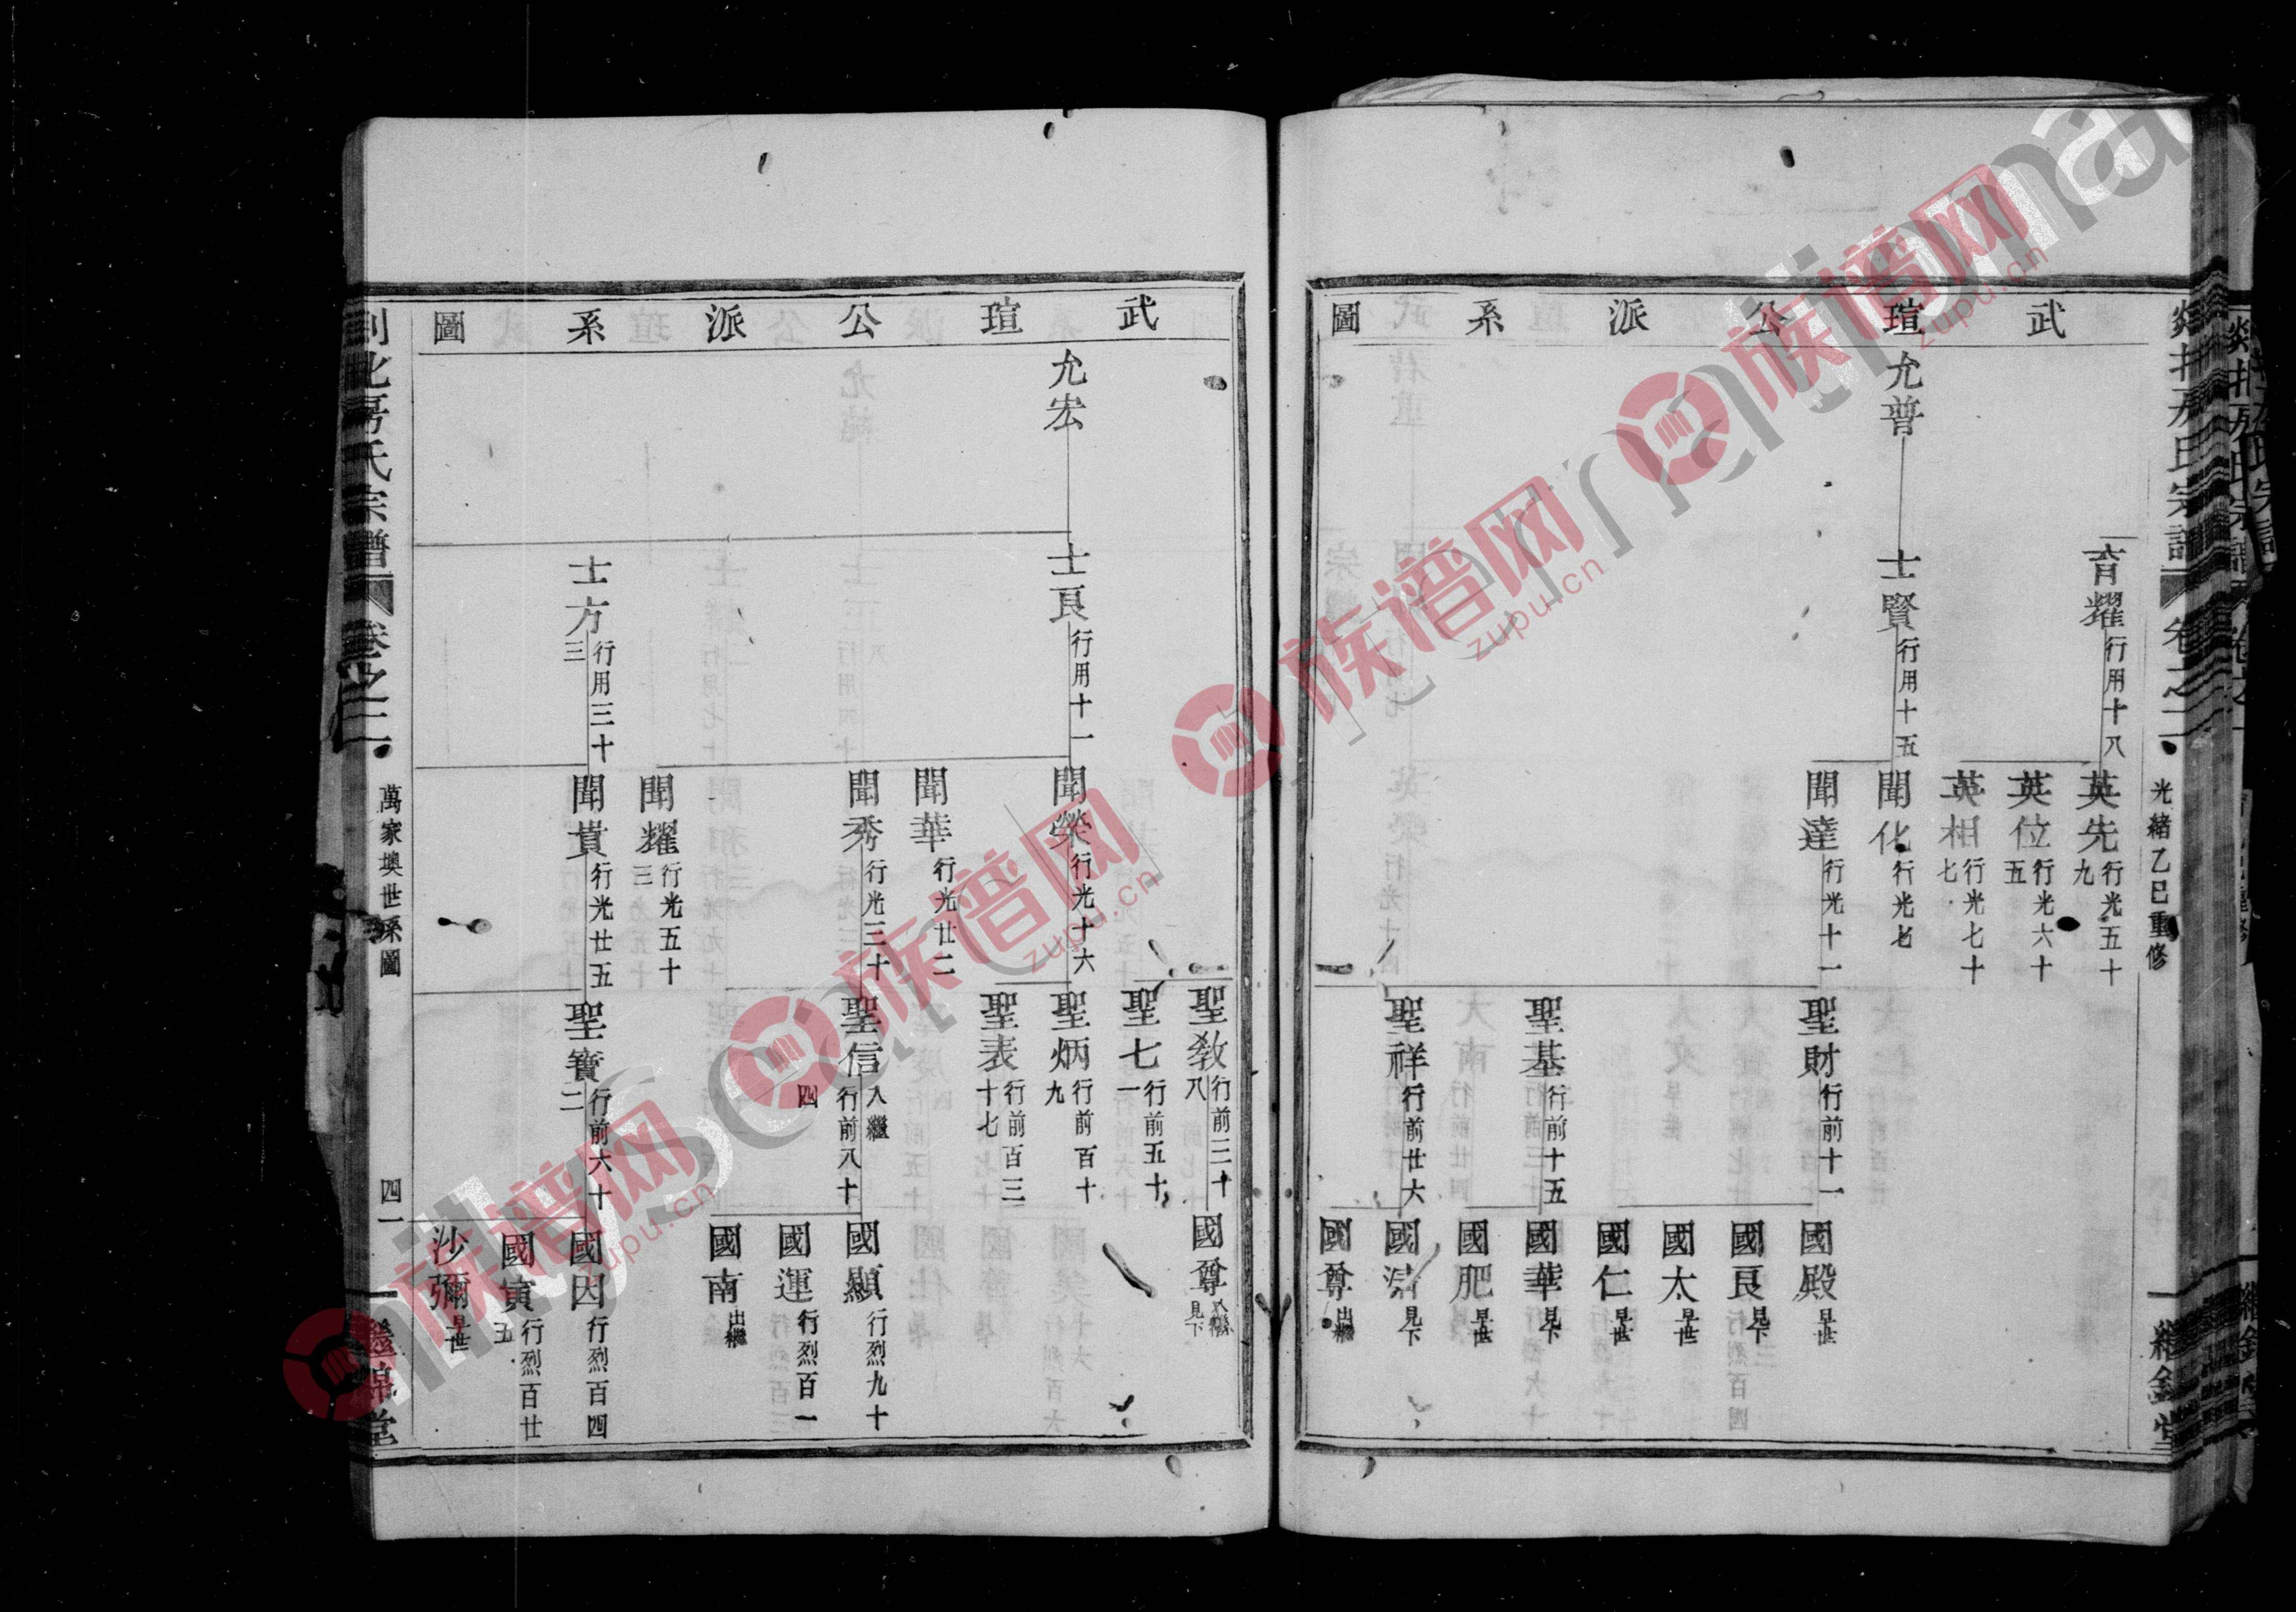 武瑄公派系圖
光緒乙巳重修
育耀 行用十八
英先 行光五十九
英位 行光六十五
英相 行光七十七
允普
士賢 行用十五
聞化 行光七
聞達 行光十一
聖財 行前十一
國殿 早世
國良 見下
國太 早世
國仁 早世
聖基 行前十五
國華 見下
國肥 早世
聖祥 行前廿六
見下
國尊 出繼
武瑄公派系圖
聖教 行前三十八
國尊 入繼 見下
聖七 行前五十一
允宏
士良 行用十一
聞榮 行光十六
聖炳 行前百十九
聖表 行前百三十七
聞華 行光廿二
聞秀 行光三十
聖信 入繼 行前八十四
國顯 行烈九十
國運 行烈百一
國南 出繼
聞耀 行光五十三
士方 行用三十三
聞貴 行光廿五
聖寶 行前六十二
國因 行烈百四
國寅 行烈百廿五
沙彌 早世
氏宗譜 卷之二
萬家墺世系圖
四一
繼錦堂
族谱网
zupu.cn